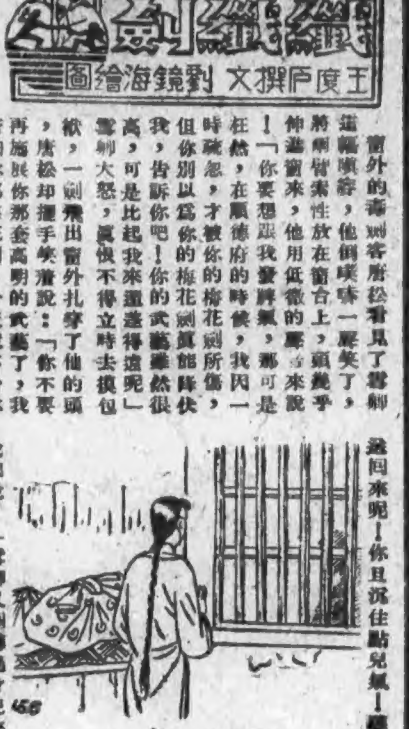 纖纖劍
王度庐撰文 劉鏡海繪圖
窗外的毒劍客唐松看見了雲卿
這種嗔容,他倒噗哧一聲笑了,
將兩臂索性放在窗台上,頭幾乎
伸進窗來,他用低微的聲音來說
!「你要想跟我發脾氣,那可是
枉然,在順德府的時候,我因一
時疏忽,才被你的梅花劍所傷,
但你別以爲你的梅花劍眞能降伏
我,告訴你吧!你的武藝雖然很
高,可是比起我來還差得遠呢」
雲卿大怒,眞恨不得立時去摸包
袱,一劍飛出窗外扎穿了他的頭
,唐松却擺手笑着說:「你不要
再施展你那套高明的武藝了,我
送回來呢!你且沉住點兒氣!
156